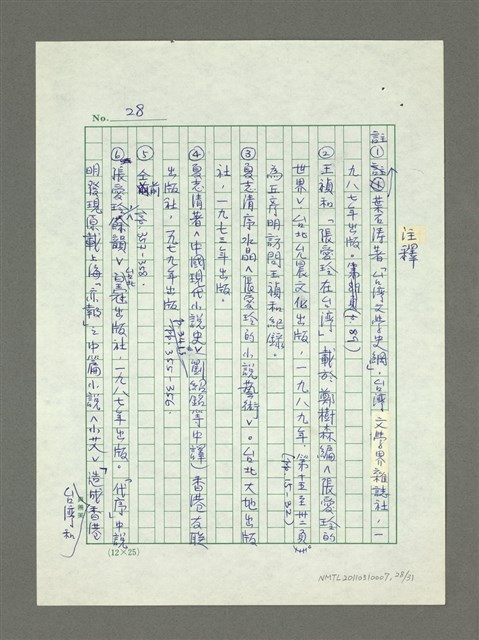 No. 28
注釋
註①葉石濤著「台灣文學史綱」,台灣文學界雜誌社,一
九八七年出版。(p. 89)
②王禎和「張愛玲在台灣」載於鄭樹森編《張愛玲的
世界》台北允晨文化出版,一九八九年,(pp. 15-32)
為丘彥明訪問王禎和紀錄。
③夏志清序水晶《張愛玲的小說藝術》。台北大地出版
社,一九七三年出版。
④夏志清著《中國現代小說史》劉紹銘等中譯)香港友聯
出版社,一九七九年出版 pp. 355-356.
⑤仝前 pp. 357-358.
⑥張愛玲《餘韻》台北皇冠出版社,一九八七年出版。「代序」中說
明發現原載上海「亦報」之中篇小說《小艾》造成香港
台灣和
(12×25)
NMTL20110810007, 28/31